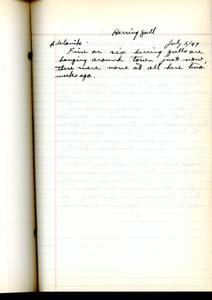 Herring Gull
Aklavik. July 5/47
Five or six herring gulls are
hanging around town just now,
there were none at all here two
weeks ago.